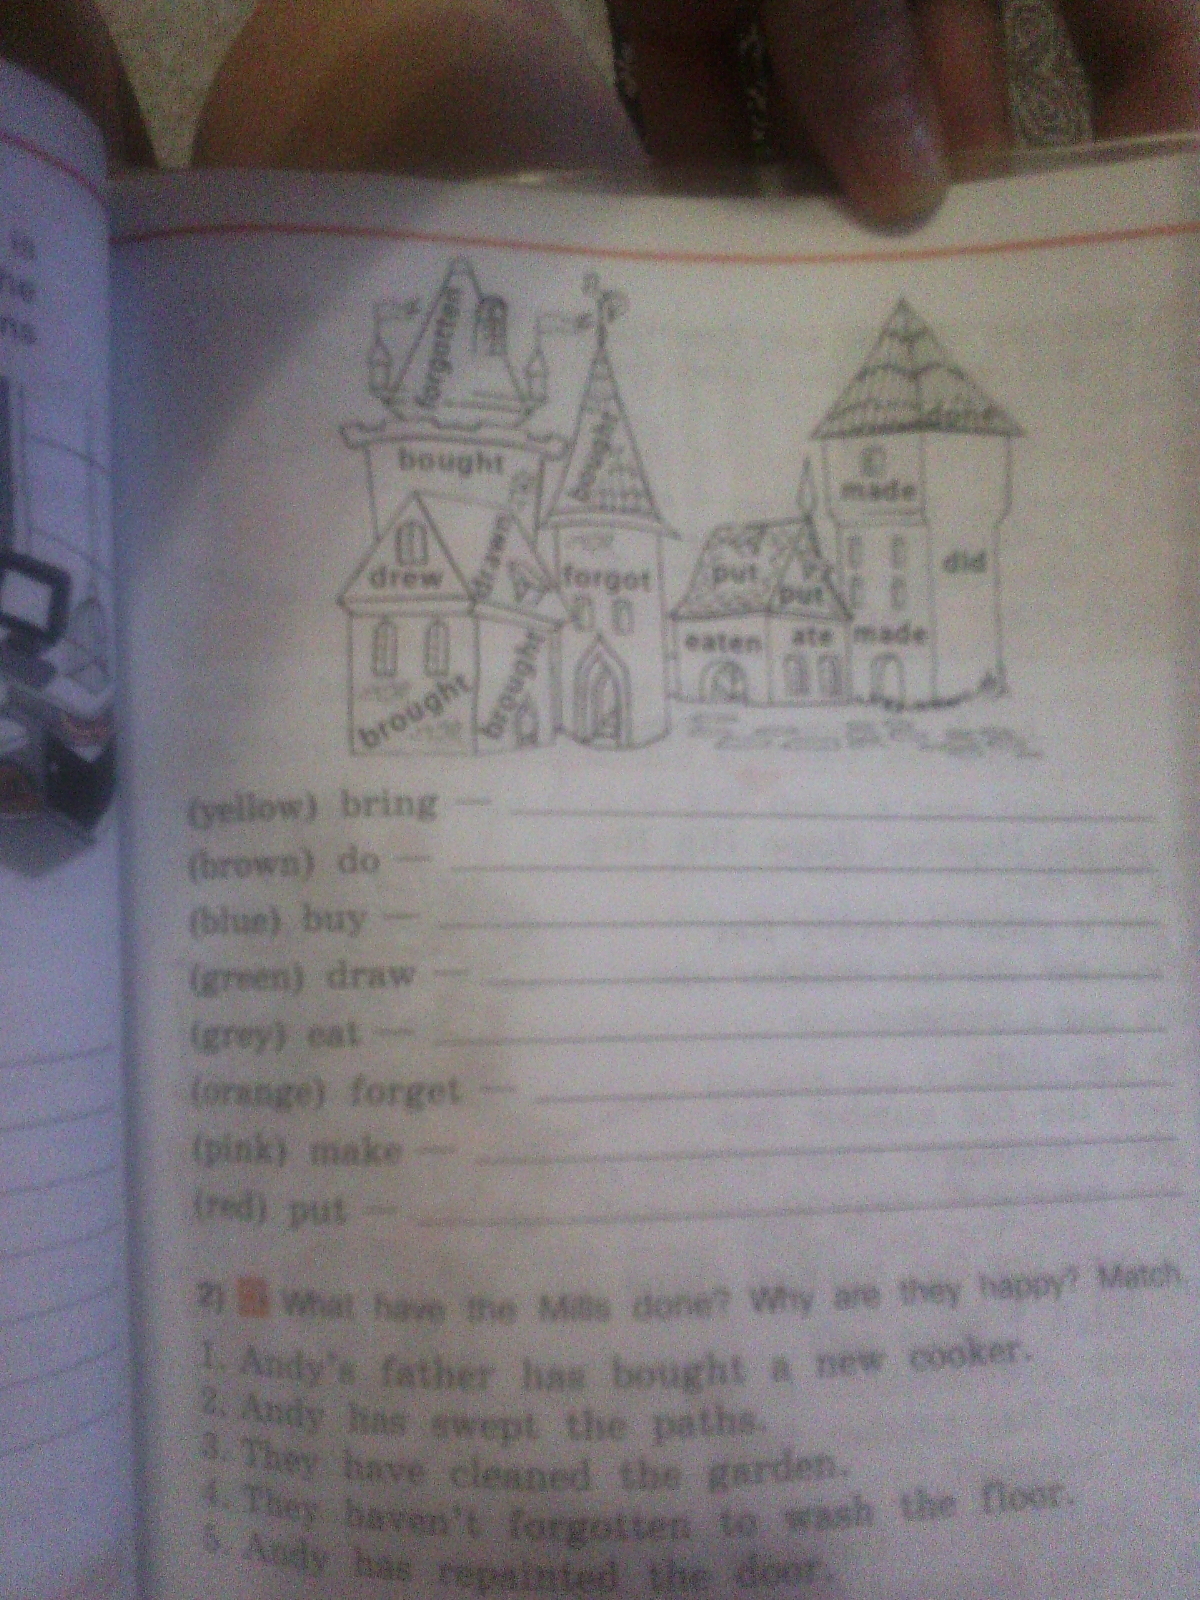 is
he
ns
forgotten
bought
bought
drawn
drew
forgot
brought
brought
done
made
did
put
put
eaten
ate
made
(yellow) bring —
(brown) do —
(blue) buy —
(green) draw —
(grey) eat —
(orange) forget —
(pink) make —
(red) put —
2) What have the Mills done? Why are they happy? Match.
1. Andy's father has bought a new cooker.
2. Andy has swept the paths.
3. They have cleaned the garden.
4. They haven't forgotten to wash the floor.
5. Andy has repainted the door.